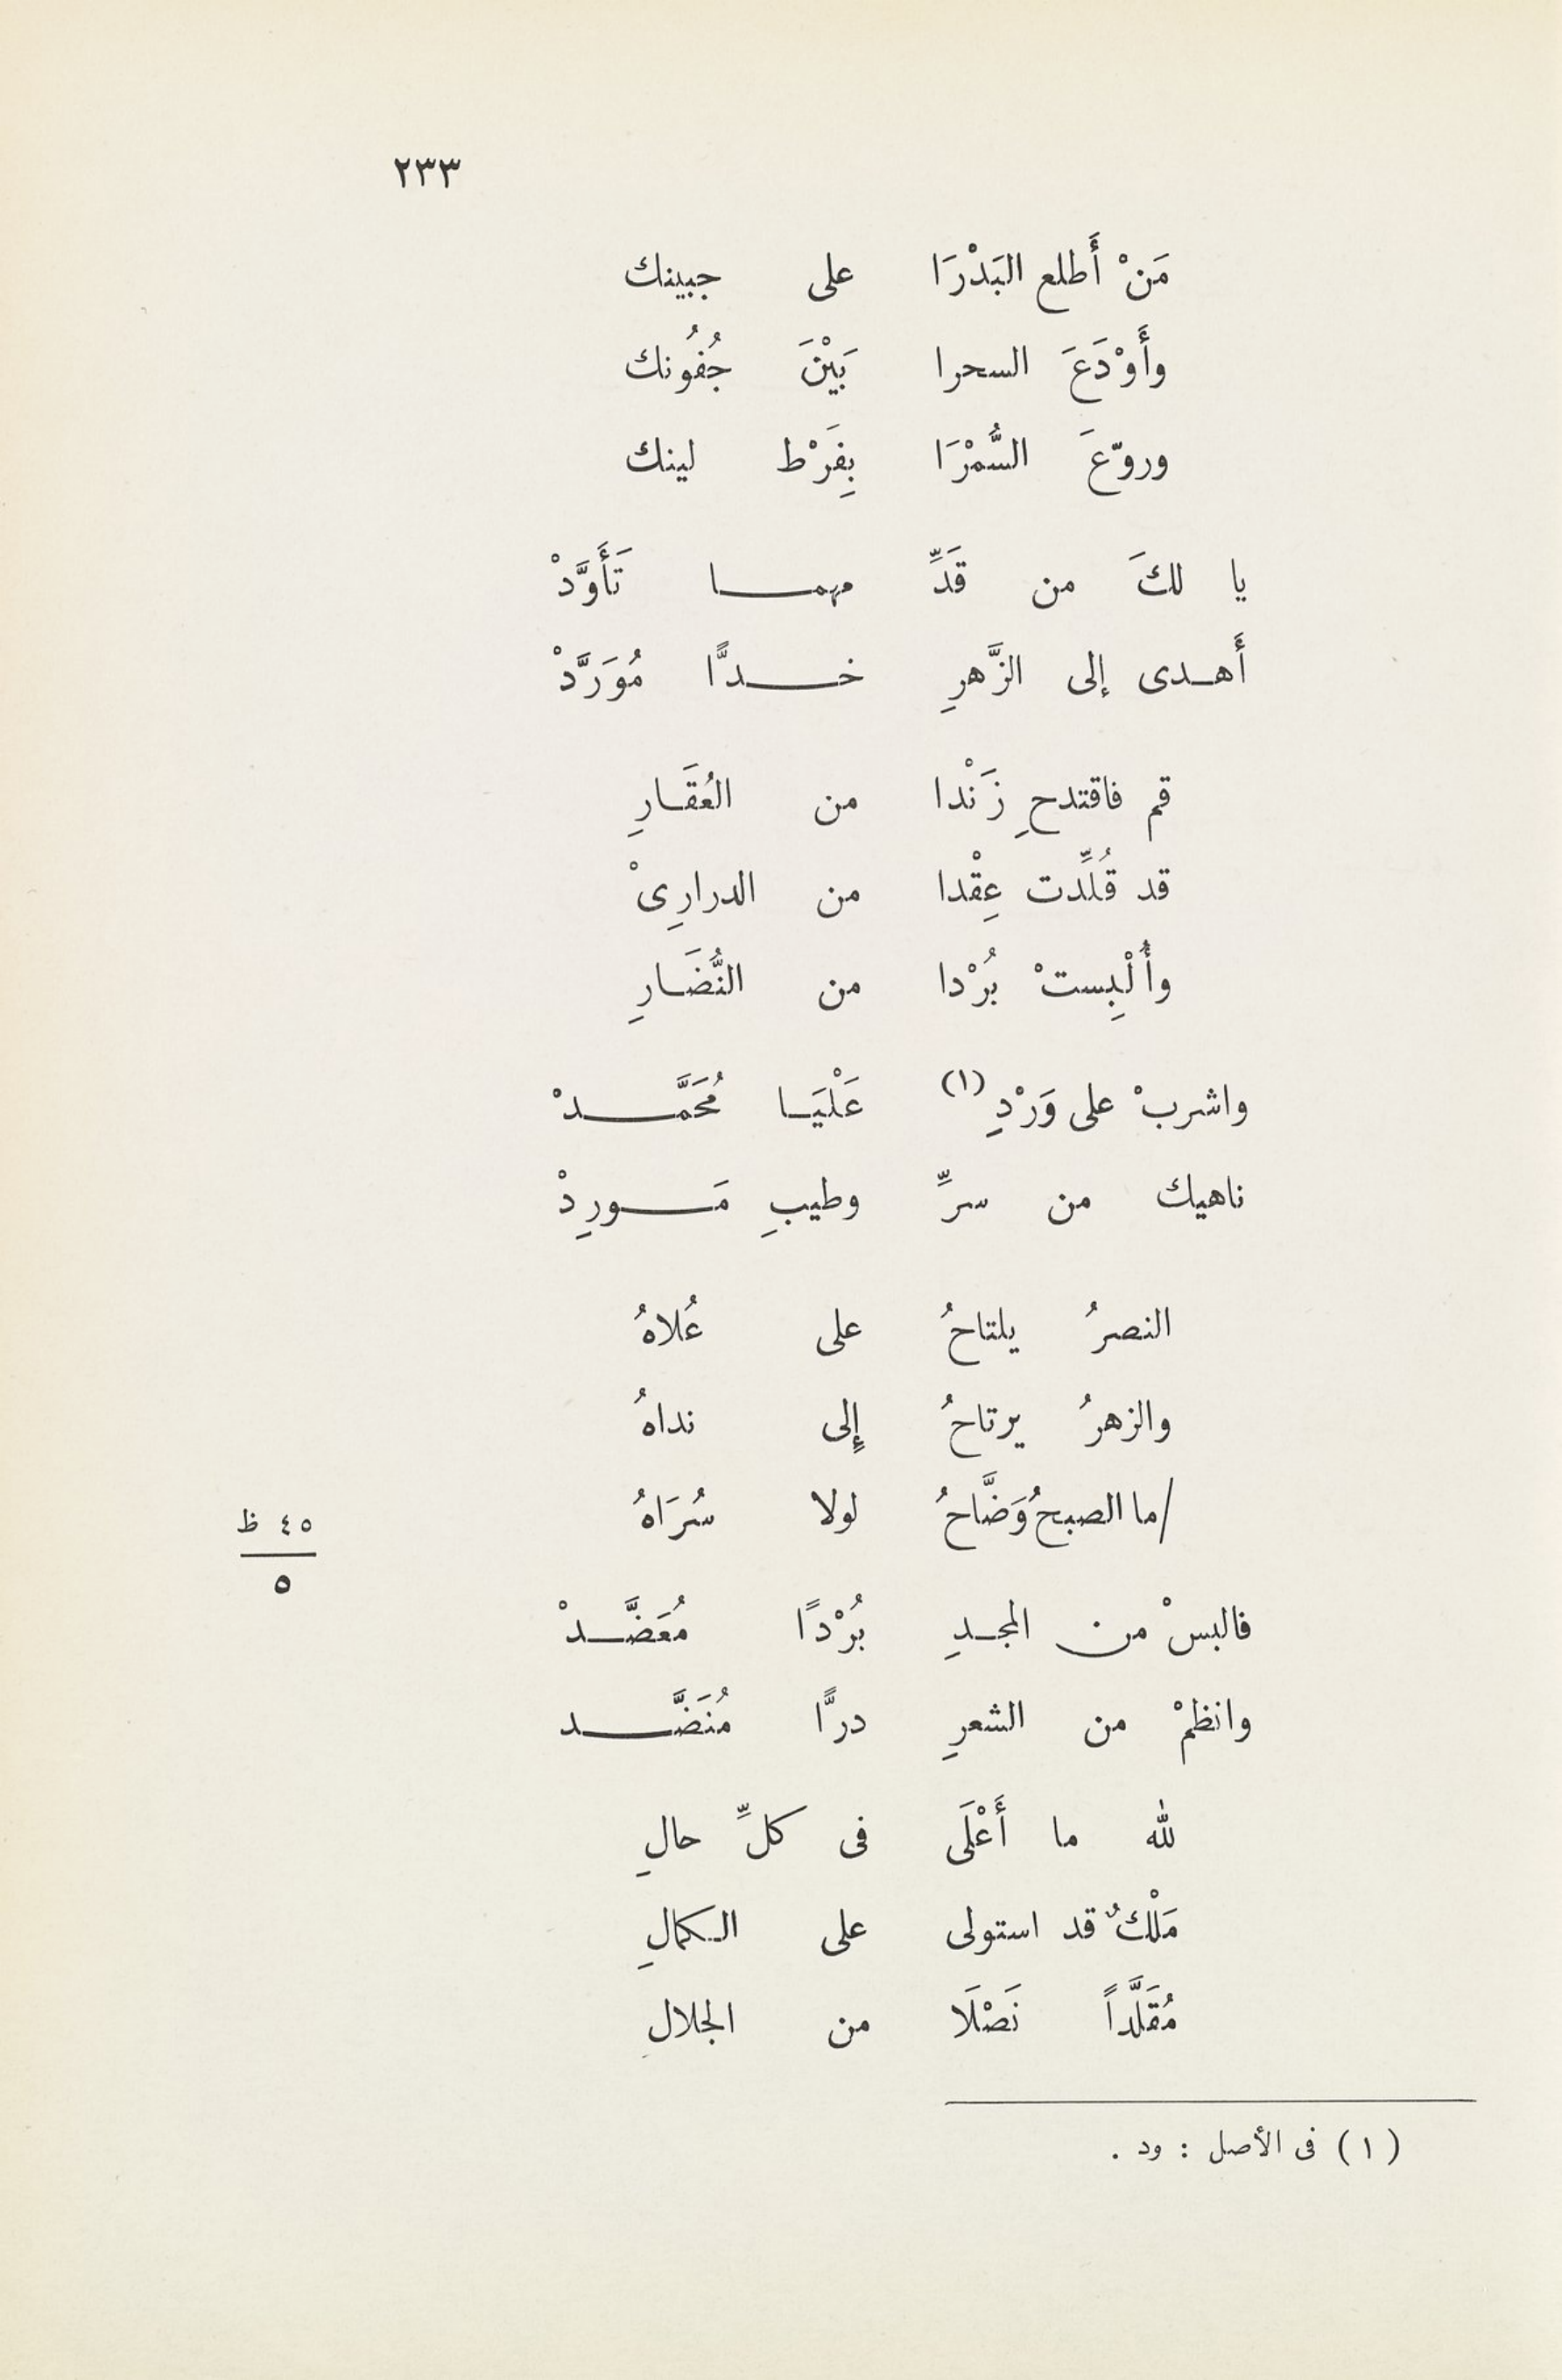 ٢٣٣
مَنْ أَطلع البَدْرَا على جبينك
وأَوْدَعَ السحرا بَيْنَ جُفُونك
وروّعَ السُّمْرَا بِفَرْط لينك
يا لكَ من قَدِّ مهمـا تَأَوَّدْ
أَهـدى إلى الزَّهرِ خـدًّا مُوَرَّدْ
قم فاقتدحِ زَنْدا من العُقَـارِ
قد قُلِّدت عِقْدا من الدرارِىْ
وأُلْبِستْ بُرْدا من النُّضَـارِ
واشربْ على وَرْدِ (١) عَلْيَـا مُحَمَّـدْ
ناهيك من سرِّ وطيبِ مَـوردْ
النصرُ يلتاحُ على عُلاهُ
والزهرُ يرتاحُ إلى نداهُ
/ما الصبحُ وَضَّاحُ لولا سُرَاهُ
٤٥ ظ
٥
فالبسْ من المجـدِ بُرْدًا مُعَضَّـدْ
وانظمْ من الشعرِ درًّا مُنَضَّـد
لله ما أَعْلَى فى كلِّ حالِ
مَلْكٌ قد استولى على الـكمالِ
مُقَلَّداً نَصْلَا من الجلالِ
(١) فى الأصل : ود .